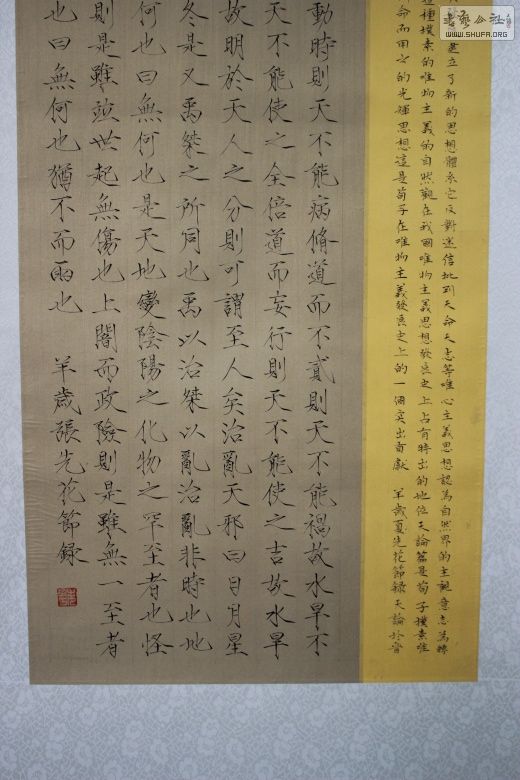 動時則天不能病脩道而不貳則天不能禍故水旱不
天不能使之全倍道而妄行則天不能使之吉故水旱
故明於天人之分則可謂至人矣治亂天邪曰日月星
冬是又禹桀之所同也禹以治桀以亂治亂非時也地
何也曰無何也是天地變陰陽之化物之罕至者也怪
則是雖竝世起無傷也上闇而政險則是雖無一至者
也曰無何也猶不而雨也 羊歲張先花節録
建立了新的思想體系它反對迷信批判天命天志等唯心主義思想認為自然界的主觀意志為轉
這種樸素的唯物主義的自然觀在我國唯物主義思想發展史上占有特出的地位天論篇是荀子樸素唯
命而用之的光輝思想這是荀子在唯物主義發展史上的一個突出貢獻 羊歲夏先花節録天論於
書艺公社
WWW.SHUFA.ORG